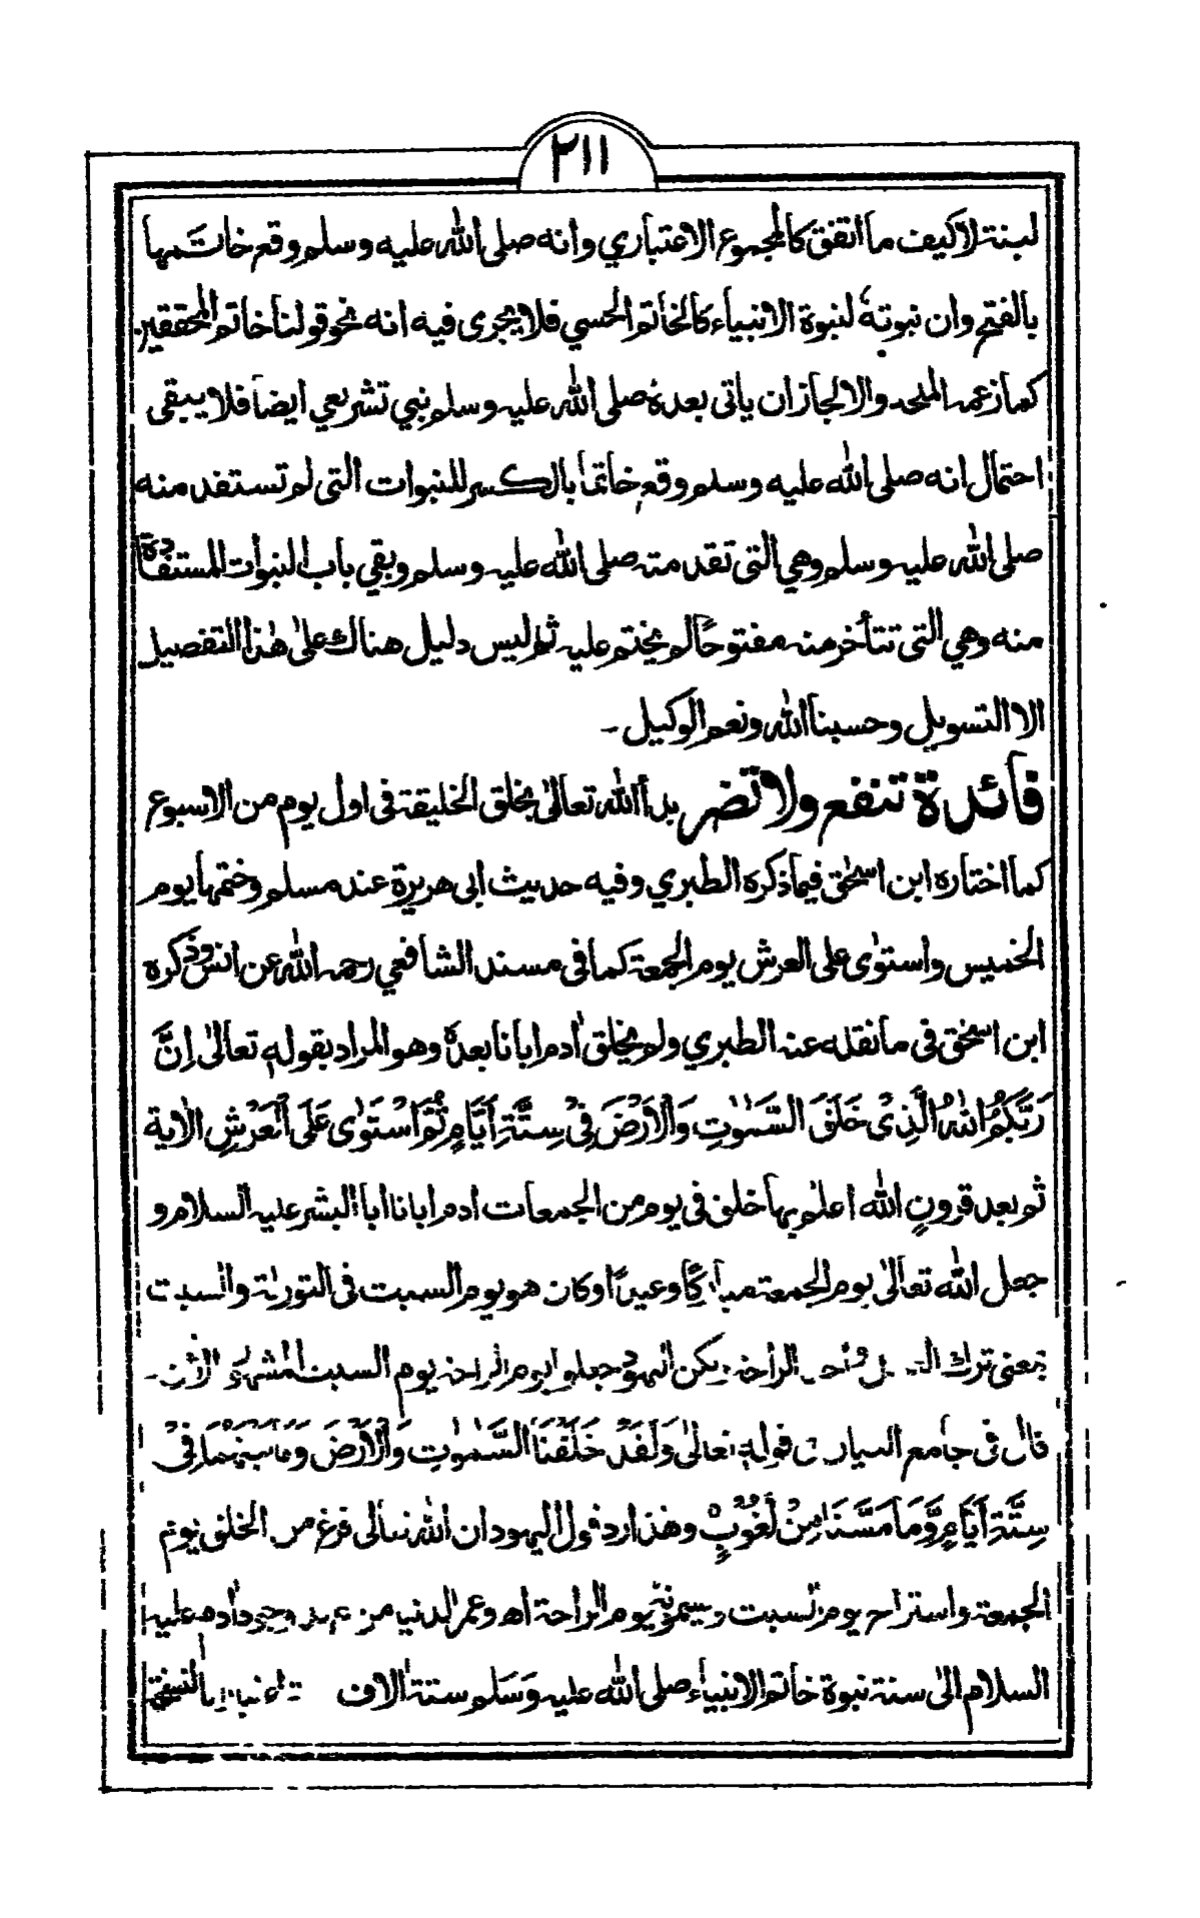 ٢١١
لبنة لا كيف ما اتفق كالمجموع الاعتباري وانه صلى الله عليه وسلم وقع خاتَمها
بالفتح وان نبوته لنبوة الانبياء كالخاتم الحسي فلا يجرى فيه انه نحو قولنا خاتم المحققين
كما زعمه الملحد والالجاز ان ياتى بعده صلى الله عليه وسلم نبي تشريعي ايضا فلا يبقى
احتمال انه صلى الله عليه وسلم وقع خاتما بالكسر للنبوات التى لم تستفد منه
صلى الله عليه وسلم وهي التى تقدمته صلى الله عليه وسلم وبقي باب النبوات المستفادة
منه وهي التى تتأخر منه مفتوحًا لم يختم عليه ثم ليس دليل هناك على هٰذا التفصيل
الا التسويل وحسبنا الله ونعم الوكيل۔
فائدة تنفع ولا تضر بدأ الله تعالىٰ بخلق الخليقة فى اول يوم من الاسبوع
كما اختاره ابن اسحٰق فيما ذكره الطبري وفيه حديث ابى هريرة عند مسلم وختمها يوم
الخميس واستوٰى على العرش يوم الجمعة كما فى مسند الشافعي رحمه الله عن انس وذكره
ابن اسحٰق فى ما نقله عنه الطبري ولم يخلق اٰدم ابانا بعده وهو المراد بقولهٖ تعالىٰ اِنَّ
رَبَّكُمُ اللّٰهُ الَّذِىْ خَلَقَ السَّمٰوٰتِ وَالْاَرْضَ فِىْ سِتَّةِ اَيَّامٍ ثُمَّ اسْتَوٰى عَلَى الْعَرْشِ الاٰية
ثم بعد قرونٍ الله اعلم بها خلق فى يوم من الجمعات ادم ابانا ابا البشر عليه السلام و
جعل الله تعالىٰ يوم الجمعة مباركًا وعيدًا وكان هو يوم السبت فى التورىٰة والسبت
بمعنى ترك الراحة يكن اليهود جعلوا يوم الراحة يوم السبت المشهور الاٰن۔
قال فى جامع البيان فى قولهٖ تعالىٰ وَلَقَدْ خَلَقْنَا السَّمٰوٰتِ وَالْاَرْضَ وَمَا بَيْنَهُمَا فِىْ
سِتَّةِ اَيَّامٍ وَّمَا مَسَّنَا مِنْ لُّغُوْبٍ وهذا رد قول اليهود ان الله تعالى فرغ من الخلق يوم
الجمعة واستراح يوم السبت ويسمونه يوم الراحة اھ وعمر الدنيا من وجود اٰدم عليه
السلام الى سنة نبوة خاتم الانبياء صلى الله عليه وَسَلم ستة اٰلاف